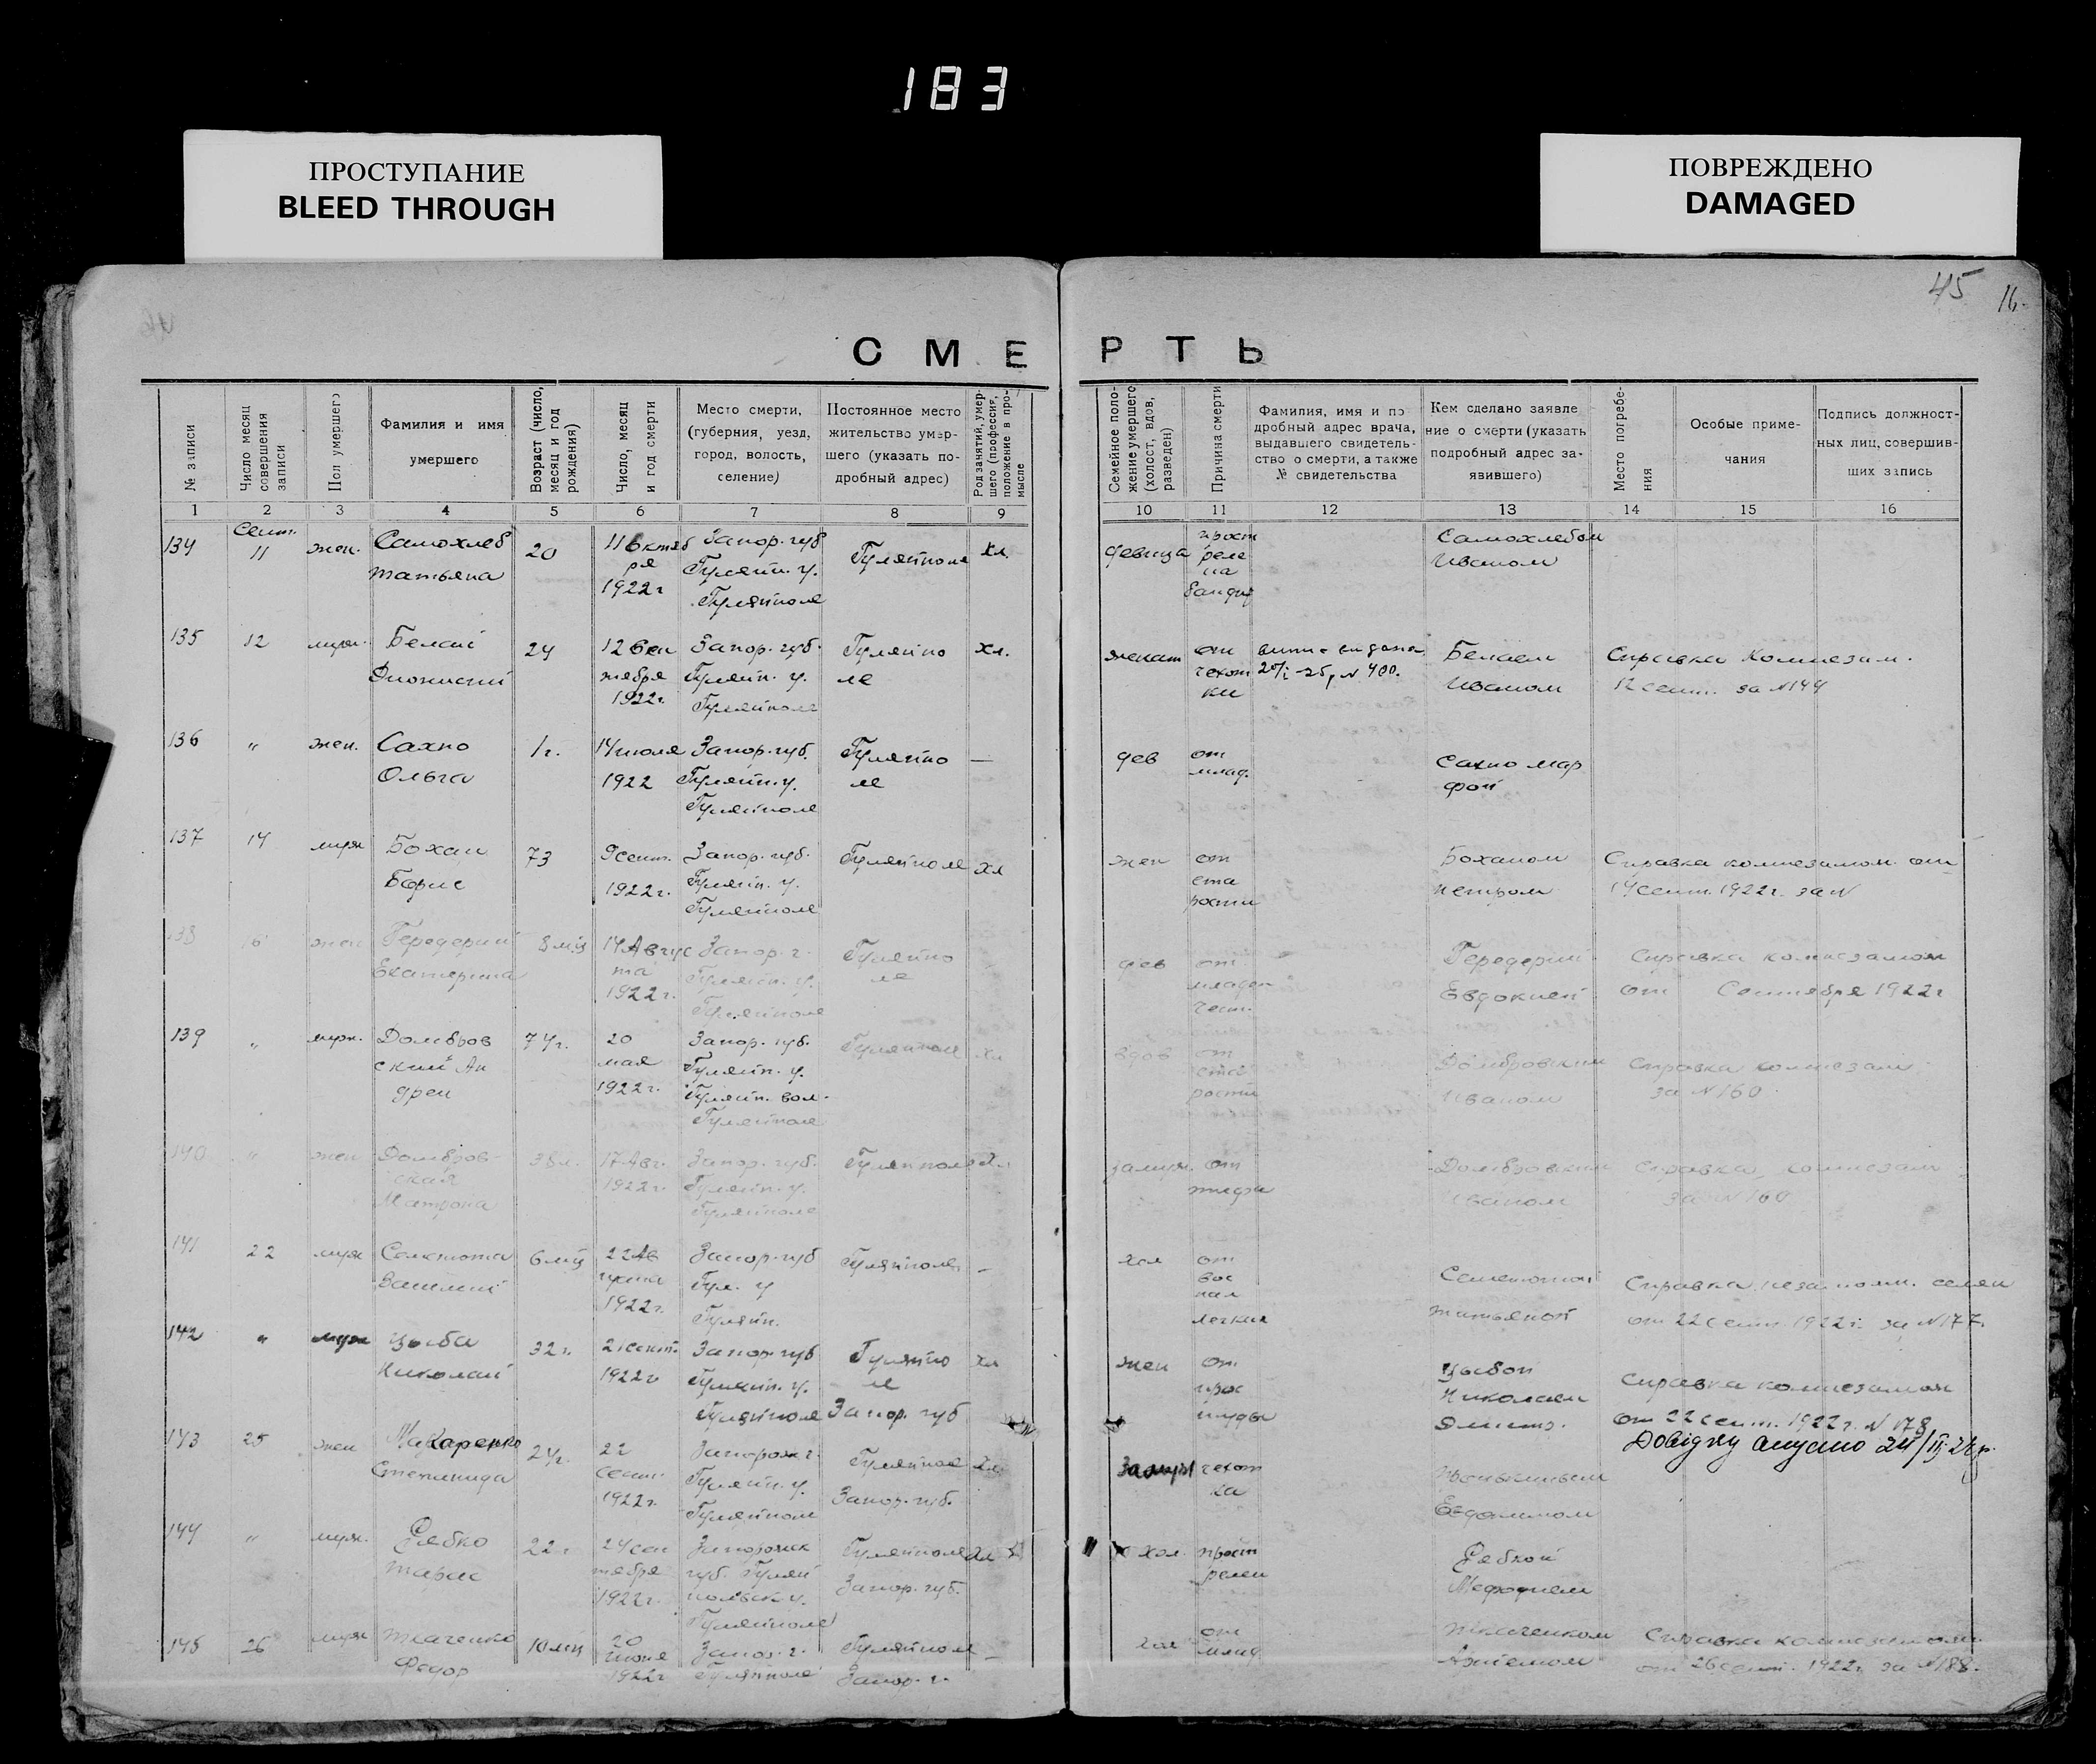 183
ПРОСТУПАНИЕ
BLEED THROUGH
ПОВРЕЖДЕНО
DAMAGED
45
16
СМЕРТЬ
№ записи
Число месяц совершения записи
Пол умершего
Фамилия и имя умершего
Возраст (число, месяц и год рождения)
Число, месяц и год смерти
Место смерти, (губерния, уезд, город, волость, селение)
Постоянное место жительство умершего (указать подробный адрес)
Род занятий, умершего (профессия, положение в промысле
Семейное положение умершего (холост, вдов, разведен)
Причина смерти
Фамилия, имя и подробный адрес врача, выдавшего свидетельство о смерти, а также № свидетельства
Кем сделано заявление о смерти (указать подробный адрес заявившего)
Место погребения
Особые примечания
Подпись должностных лиц, совершивших запись
1 2 3 4 5 6 7 8 9 10 11 12 13 14 15 16
134 Сент. 11 жен. Самохлеб Татьяна 20 1922 г Запор. губ Гуляйп. у. Гуляйполе Гуляйполе хл. девица Самохлебом Иваном
135 12 муж. Белай Дионисий 24 12 Сентября 1922 г. Запор. губ. Гуляйп. у. Гуляйполе Гуляйполе хл. женат от чехотки Белаем Иваном Справка Комнезам. 12 сент. за №144
136 " жен. Сахно Ольга 1 г. 14 июля 1922 Запор. губ. Гуляйп. у. Гуляйполе Гуляйполе — дев от млад. Сахно Марфой
137 14 муж Бохан Борис 73 9 сент. 1922 г. Запор. губ. Гуляйп. у. Гуляйполе Гуляйполе хл жен от старости Боханом Петром Справка комнезамом от 14 сент. 1922 г. за №
138 16 жен Передерий Екатерина 8 м-ц 14 Августа 1922 г. Запор. г. Гуляйп. у. Гуляйполе Гуляйполе дев от младен Передерий Евдокией Справка комнезамом от Сентября 1922 г
139 " муж. Домбровский Андрей 74 г. 20 мая 1922 г. Запор. губ. Гуляйп. у. Гуляйп. вол. Гуляйполе Гуляйполе хл вдов от старости Домбровским Иваном Справка комнезам за №160
140 " жен Домбровская Матрона 38 л. 17 Авг. 1922 г. Запор. губ. Гуляйп. у. Гуляйполе Гуляйполе хл. замуж. от тифа Домбровским Иваном Справка комнезам за №160
141 22 муж Василий 6 м-ц 22 Августа 1922 г. Запор. губ Гул. у Гуляйп. Гуляйполе — хол от воспал легких Татьяной от 22 сент. 1922 г. за №177.
142 " муж Цыба Николай 32 г. 21 сент. 1922 г Запор. губ Гуляйп. у. Гуляйполе Гуляйполе Запор. губ хл жен от простуды Цыбой Николаем Справка комнезамом от 22 сент. 1922 г. №178
143 25 жен Макаренко Степанида 24 г. 22 сент. 1922 г. Запорож г. Гуляйп. у. Гуляйполе Гуляйполе Запор. губ. хл. замуж чехотка
144 " муж. Рябко Тарас 22 г 24 сентября 1922 г. Запорожск губ. Гуляйпольск у. Гуляйполе Гуляйполе Запор. губ. хл хол. прострелен Рябкой Мефодием
145 26 муж Ткаченко Федор 10 м-ц 20 июня 1922 г Запор. г. Гуляйполе Гуляйполе Запор. г. — хол от млад. Ткаченком Справка комнезамом от 26 сент. 1922 г. за №188.